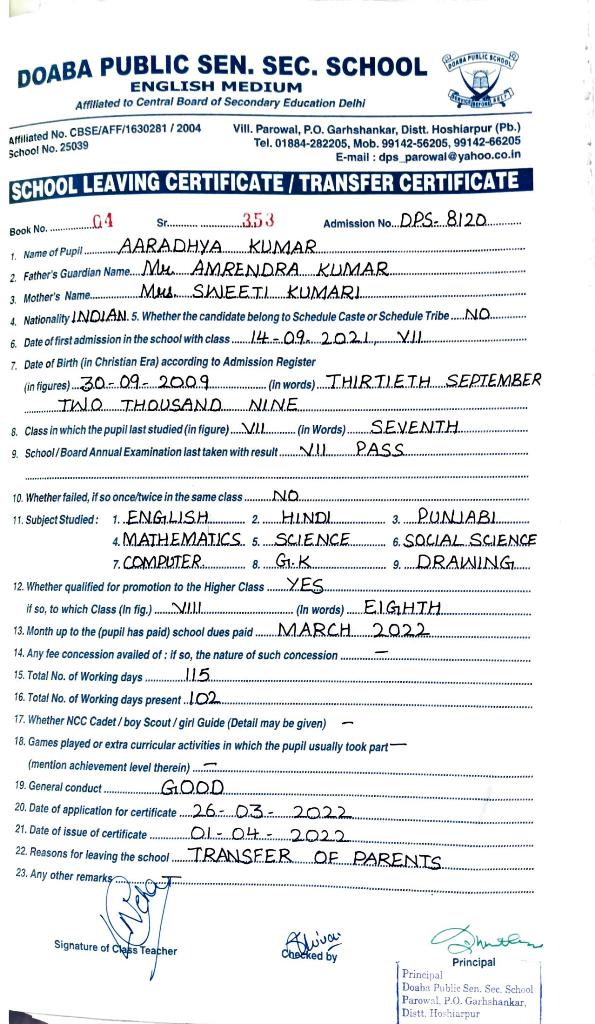 DOABA PUBLIC SEN. SEC. SCHOOL
ENGLISH MEDIUM
Affiliated to Central Board of Secondary Education Delhi
DOABA PUBLIC SCHOOL
Affiliated No. CBSE/AFF/1630281 / 2004
School No. 25039
Vill. Parowal, P.O. Garhshankar, Distt. Hoshiarpur (Pb.)
Tel. 01884-282205, Mob. 99142-56205, 99142-66205
E-mail : dps_parowal@yahoo.co.in
SCHOOL LEAVING CERTIFICATE / TRANSFER CERTIFICATE
Book No. 04 Sr. 353 Admission No. DPS-8120
1. Name of Pupil AARADHYA KUMAR
2. Father's Guardian Name Mr. AMRENDRA KUMAR
3. Mother's Name Mrs. SWEETI KUMARI
4. Nationality INDIAN. 5. Whether the candidate belong to Schedule Caste or Schedule Tribe NO
6. Date of first admission in the school with class 14-09-2021, VII
7. Date of Birth (in Christian Era) according to Admission Register
(in figures) 30-09-2009 (In words) THIRTIETH SEPTEMBER
TWO THOUSAND NINE
8. Class in which the pupil last studied (in figure) VII (in Words) SEVENTH
9. School / Board Annual Examination last taken with result VII PASS
10. Whether failed, if so once/twice in the same class NO
11. Subject Studied : 1. ENGLISH 2. HINDI 3. PUNJABI
4. MATHEMATICS 5. SCIENCE 6. SOCIAL SCIENCE
7. COMPUTER 8. G.K 9. DRAWING
12. Whether qualified for promotion to the Higher Class YES
if so, to which Class (In fig.) VIII (In words) EIGHTH
13. Month up to the (pupil has paid) school dues paid MARCH 2022
14. Any fee concession availed of : if so, the nature of such concession –
15. Total No. of Working days 115
16. Total No. of Working days present 102
17. Whether NCC Cadet / boy Scout / girl Guide (Detail may be given) –
18. Games played or extra curricular activities in which the pupil usually took part –
(mention achievement level therein) –
19. General conduct GOOD
20. Date of application for certificate 26-03-2022
21. Date of issue of certificate 01-04-2022
22. Reasons for leaving the school TRANSFER OF PARENTS
23. Any other remarks
Signature of Class Teacher
Checked by
Principal
Principal
Doaba Public Sen. Sec. School
Parowal, P.O. Garhshankar,
Distt. Hoshiarpur